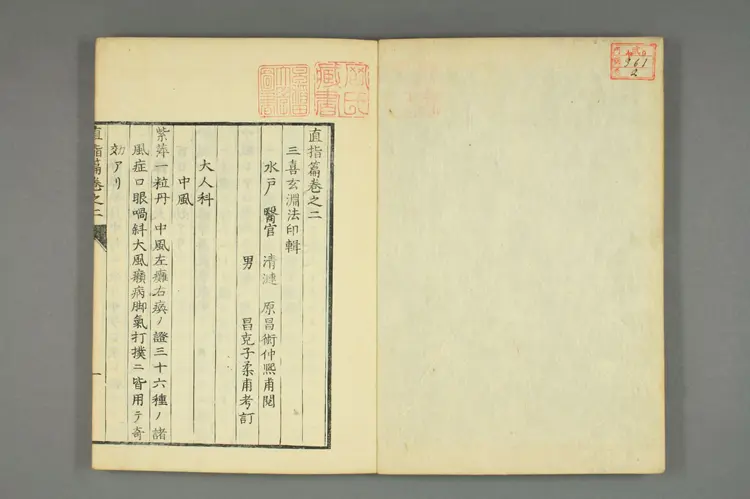 直指篇卷之二
三喜玄淵法印輯
水戶 醫官 清漣 原昌衛仲熙甫閱
男 昌克子柔甫考訂
大人科
中風
紫萍一粒丹 中風左癱右瘓ノ證三十六種ノ諸
風症口眼喎斜大風癩病脚氣打撲ニ皆用テ奇
効アリ
直指篇卷之二
一
藏書
961
2